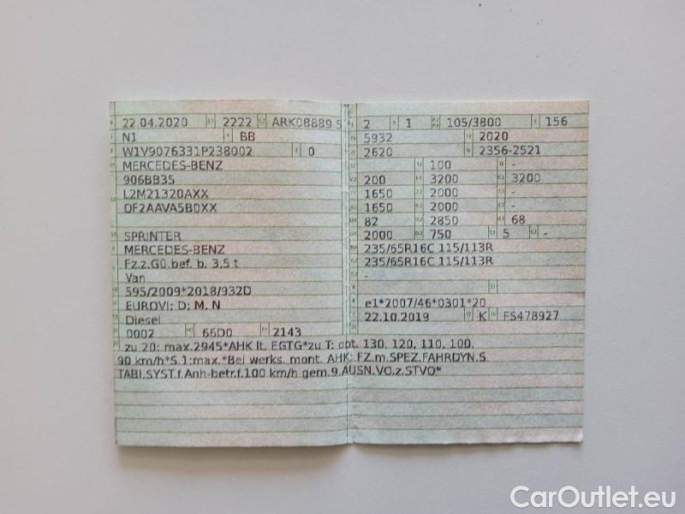 22.04.2020 2222 ARK08889 5
N1 BB
W1V9076331P238002 0
MERCEDES-BENZ
906BB35
L2M21320AXX
DF2AAVA5B0XX
SPRINTER
MERCEDES-BENZ
Fz.z.Gü.bef. b. 3,5 t
Van
595/2009*2018/932D
EUROVI; D; M, N
Diesel
0002 66D0 2143
2 1 105/3800 156
5932 2020
2620 2356-2521
100 -
200 3200 3200
1650 2000 -
1650 2000 -
82 2850 68
2000 750 5 -
235/65R16C 115/113R
235/65R16C 115/113R
-
e1*2007/46*0301*20
22.10.2019 K FS478927
zu 20: max.2945*AHK lt. EGTG*zu T: opt. 130, 120, 110, 100,
90 km/h*S.1:max.*Bei werks. mont. AHK: FZ.m.SPEZ.FAHRDYN.S
TABI.SYST.f.Anh-betr.f.100 km/h gem.9.AUSN.VO.z.STVO*
CarOutlet.eu